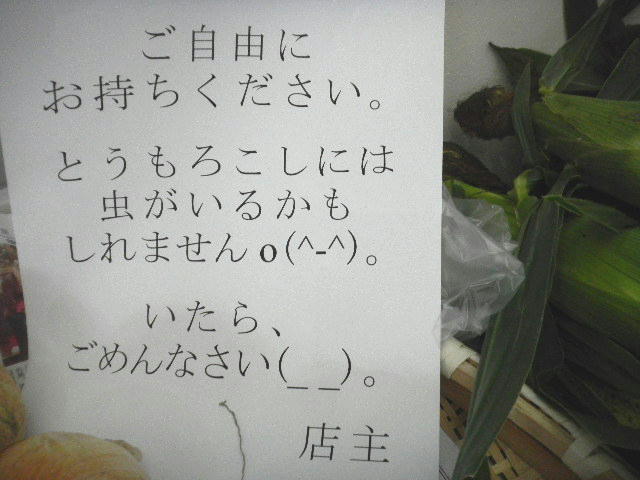 ご自由に
お持ちください。
とうもろこしには
虫がいるかも
しれませんo(^-^)。
いたら、
ごめんなさい(_ _)。
店主